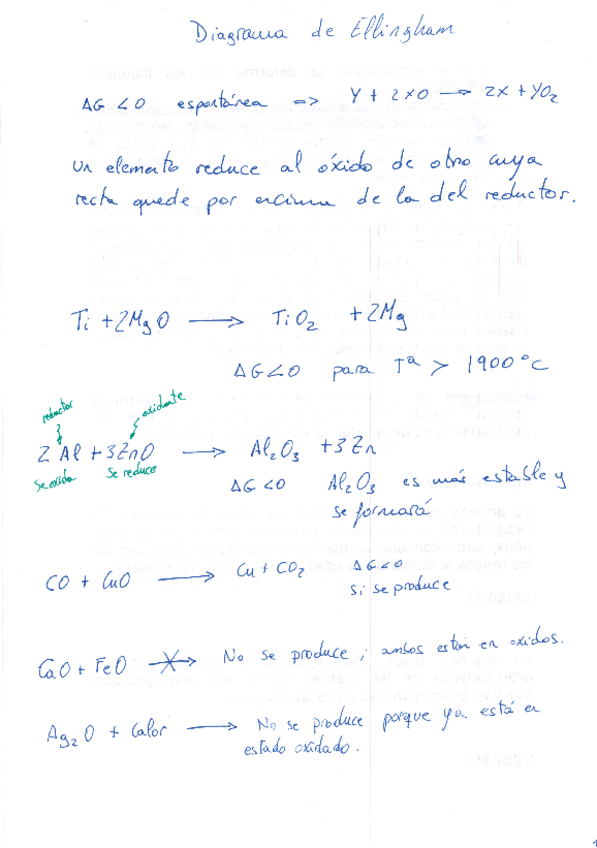 Diagrama de Ellingham
ΔG < 0 espontánea => Y + 2XO → 2X + YO₂
Un elemento reduce al óxido de otro cuya
recta quede por encima de la del reductor.
Ti + 2MgO → TiO₂ + 2Mg
ΔG < 0 para Tª > 1900 °C
reductor oxidante
2 Al + 3ZnO → Al₂O₃ + 3Zn
Se oxida Se reduce
ΔG < 0 Al₂O₃ es más estable y
se formará
CO + CuO → Cu + CO₂ ΔG < 0
si se produce
CaO + FeO → No se produce ; ambos están en oxidos.
Ag₂O + Calor → No se produce porque ya está en
estado oxidado.
1